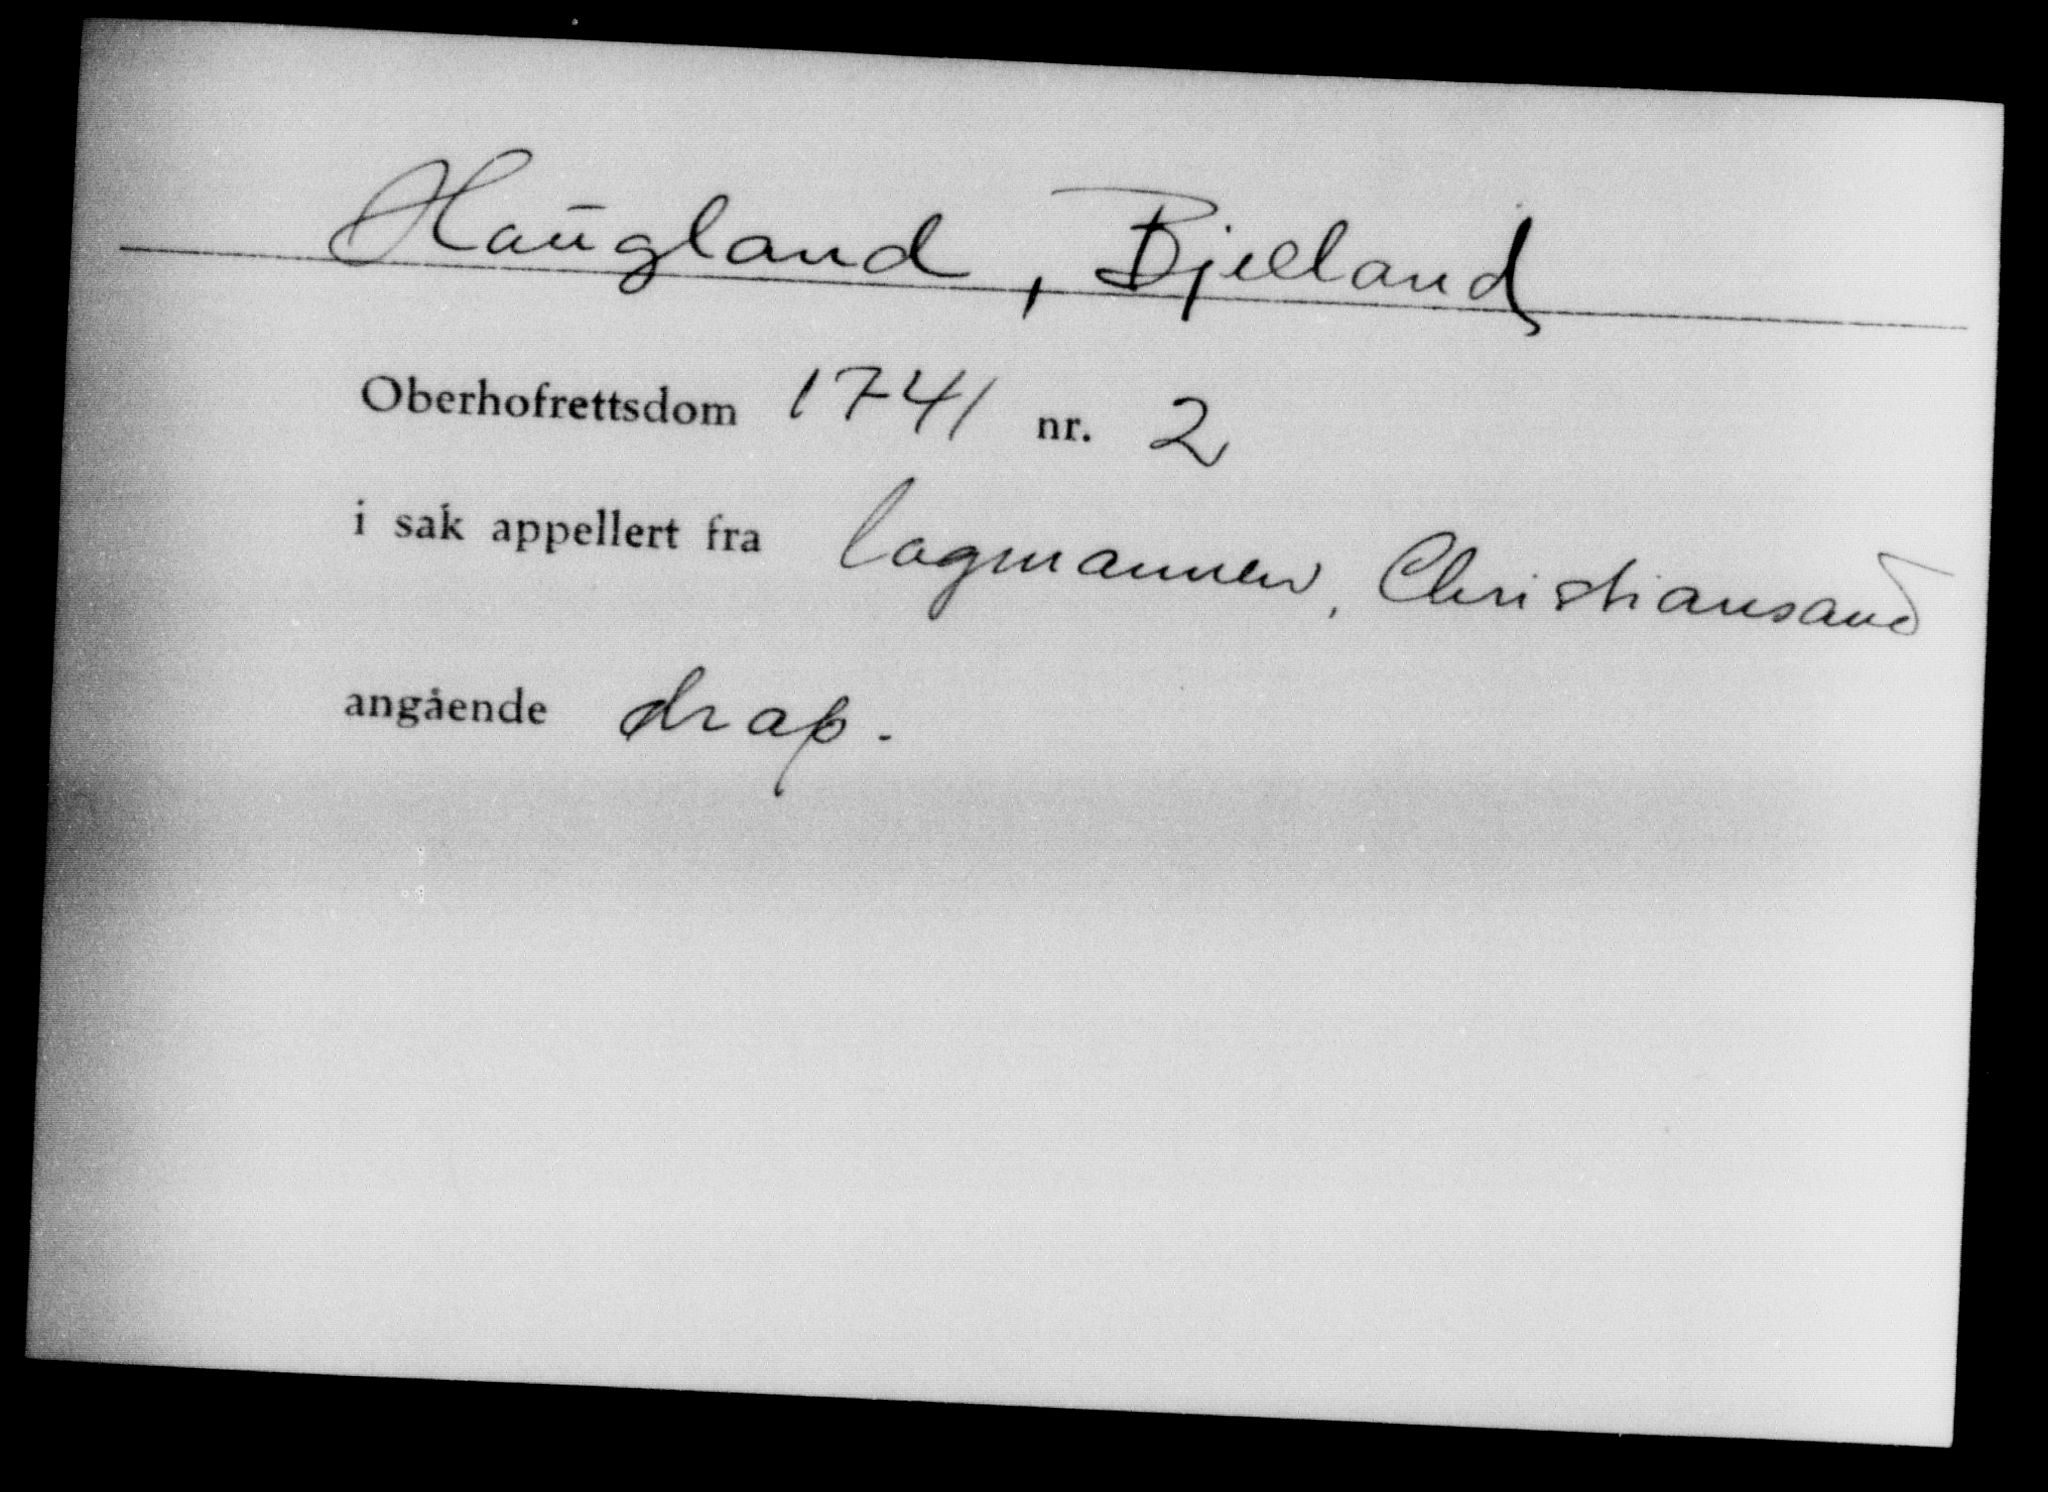 Haugland, Bjelland
Oberhofrettsdom 1741 nr. 2
i sak appellert fra lagmannen, Christiansand
angående drap.